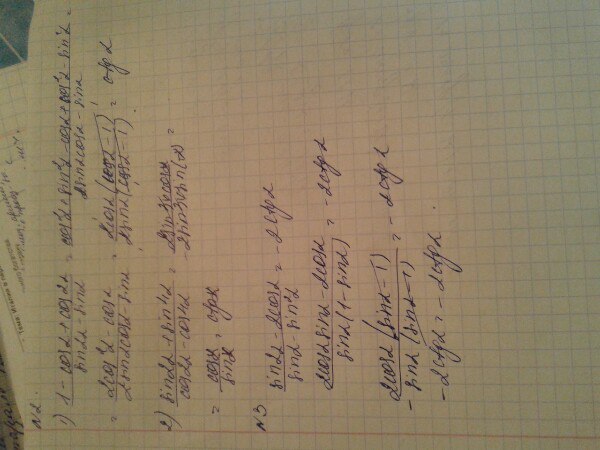 N2.
1) (1 - cosα + cos2α)/(sin2α - sinα) = (cos²α + sin²α - cosα + cos²α - sin²α)/(2sinαcosα - sinα) =
= (2cos²α - cosα)/(2sinαcosα - sinα) = = ctgα
2) (sin2α + sin4α)/(cos2α - cos4α) = =
= cosα/sinα = ctgα
N3
(sin2α - 2cosα)/(sinα - sin²α) = -2ctgα
(2cosαsinα - 2cosα)/(sinα(1 - sinα)) = -2ctgα
(2cosα(sinα - 1))/(-sinα(sinα - 1)) = -2ctgα
-2ctgα = -2ctgα.